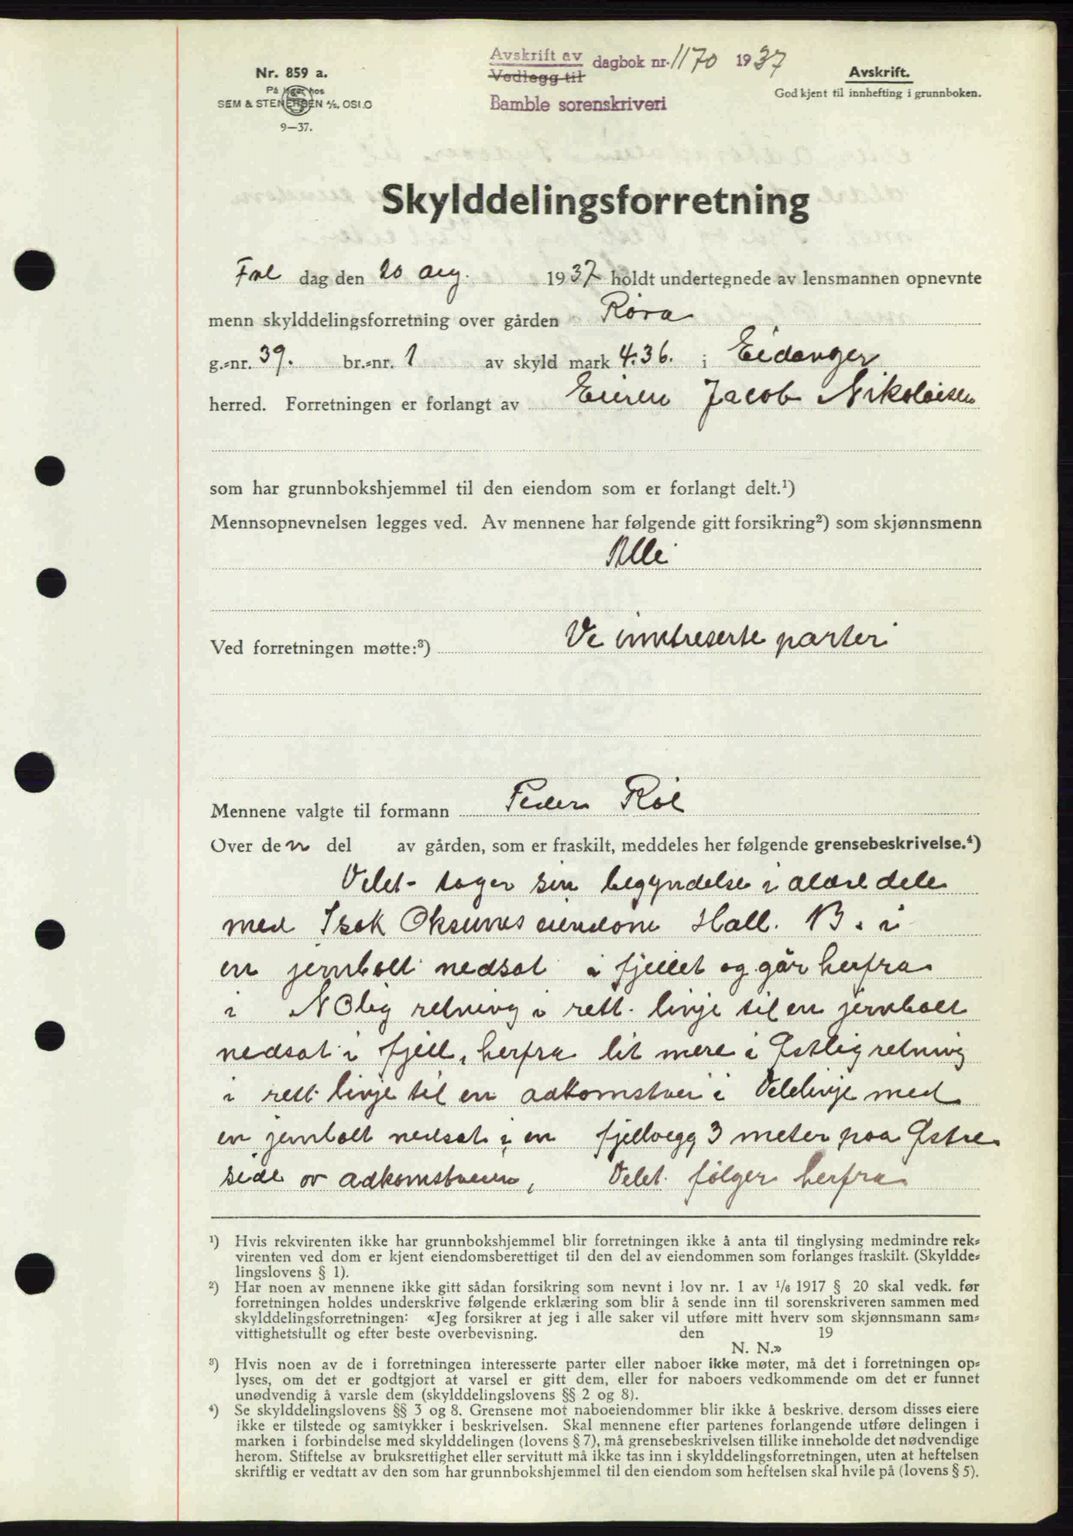 Nr. 859 a.
På lager hos
SEM & STENERSEN A/S, OSLO
9—37.
Avskrift av
Vedlegg til
dagbok nr. 1170 1937
Bamble sorenskriveri
Avskrift.
Godkjent til innhefting i grunnboken.
Skylddelingsforretning
Fre dag den 20 aug. 1937 holdt undertegnede av lensmannen opnevnte
menn skylddelingsforretning over gården Röra
g.=nr. 39. br.=nr. 1 av skyld mark 4.36. i Eidanger
herred. Forretningen er forlangt av Eieren Jacob Nikolaisen
som har grunnbokshjemmel til den eiendom som er forlangt delt.¹)
Mennsopnevnelsen legges ved. Av mennene har følgende gitt forsikring²) som skjønnsmenn
Alle
Ved forretningen møtte:³) De inntreserte parter
Mennene valgte til formann Peder
Over den del av gården, som er fraskilt, meddeles her følgende grensebeskrivelse.⁴)
Delet tager sin begyndelse i aldre dele
med Isak eiendom Hall. B. i
en jernbolt nedsat i fjellet og går herfra
i NOlig retning i rett linje til en jernbolt
nedsat i fjell, herfra lit mere i Østlig retning
i rett linje til en adkomstvei i Delelinje med
en jernbolt nedsat i en fjellvegg 3 meter paa Østre
side av adkomstveien, Delet følger herfra
¹) Hvis rekvirenten ikke har grunnbokshjemmel blir forretningen ikke å anta til tinglysing medmindre rek=
virenten ved dom er kjent eiendomsberettiget til den del av eiendommen som forlanges fraskilt. (Skyldde=
lingslovens § 1).
²) Har noen av mennene ikke gitt sådan forsikring som nevnt i lov nr. 1 av 1/6 1917 § 20 skal vedk. før
forretningen holdes underskrive følgende erklæring som blir å sende inn til sorenskriveren sammen med
skylddelingsforretningen: «Jeg forsikrer at jeg i alle saker vil utføre mitt hverv som skjønnsmann sam=
vittighetsfullt og efter beste overbevisning. den 19
N. N.»
³) Hvis noen av de i forretningen interesserte parter eller naboer ikke møter, må det i forretningen op=
lyses, om det er godtgjort at varsel er gitt dem, eller for naboers vedkommende om det er funnet
unødvendig å varsle dem (skylddelingslovens §§ 2 og 8).
⁴) Se skylddelingslovens §§ 3 og 8. Grensene mot naboeiendommer blir ikke å beskrive, dersom disses eiere
ikke er tilstede og samtykker i beskrivelsen. Skal mennene efter partenes forlangende utføre delingen i
marken i forbindelse med skylddelingen (lovens § 7), må grensebeskrivelsen tillike inneholde det nødvendige
herom. Stiftelse av bruksrettighet eller servitutt må ikke tas inn i skylddelingsforretningen, uten at heftelsen
skriftlig er vedtatt av den som har grunnbokshjemmel til den eiendom som heftelsen skal hvile på (lovens § 5).